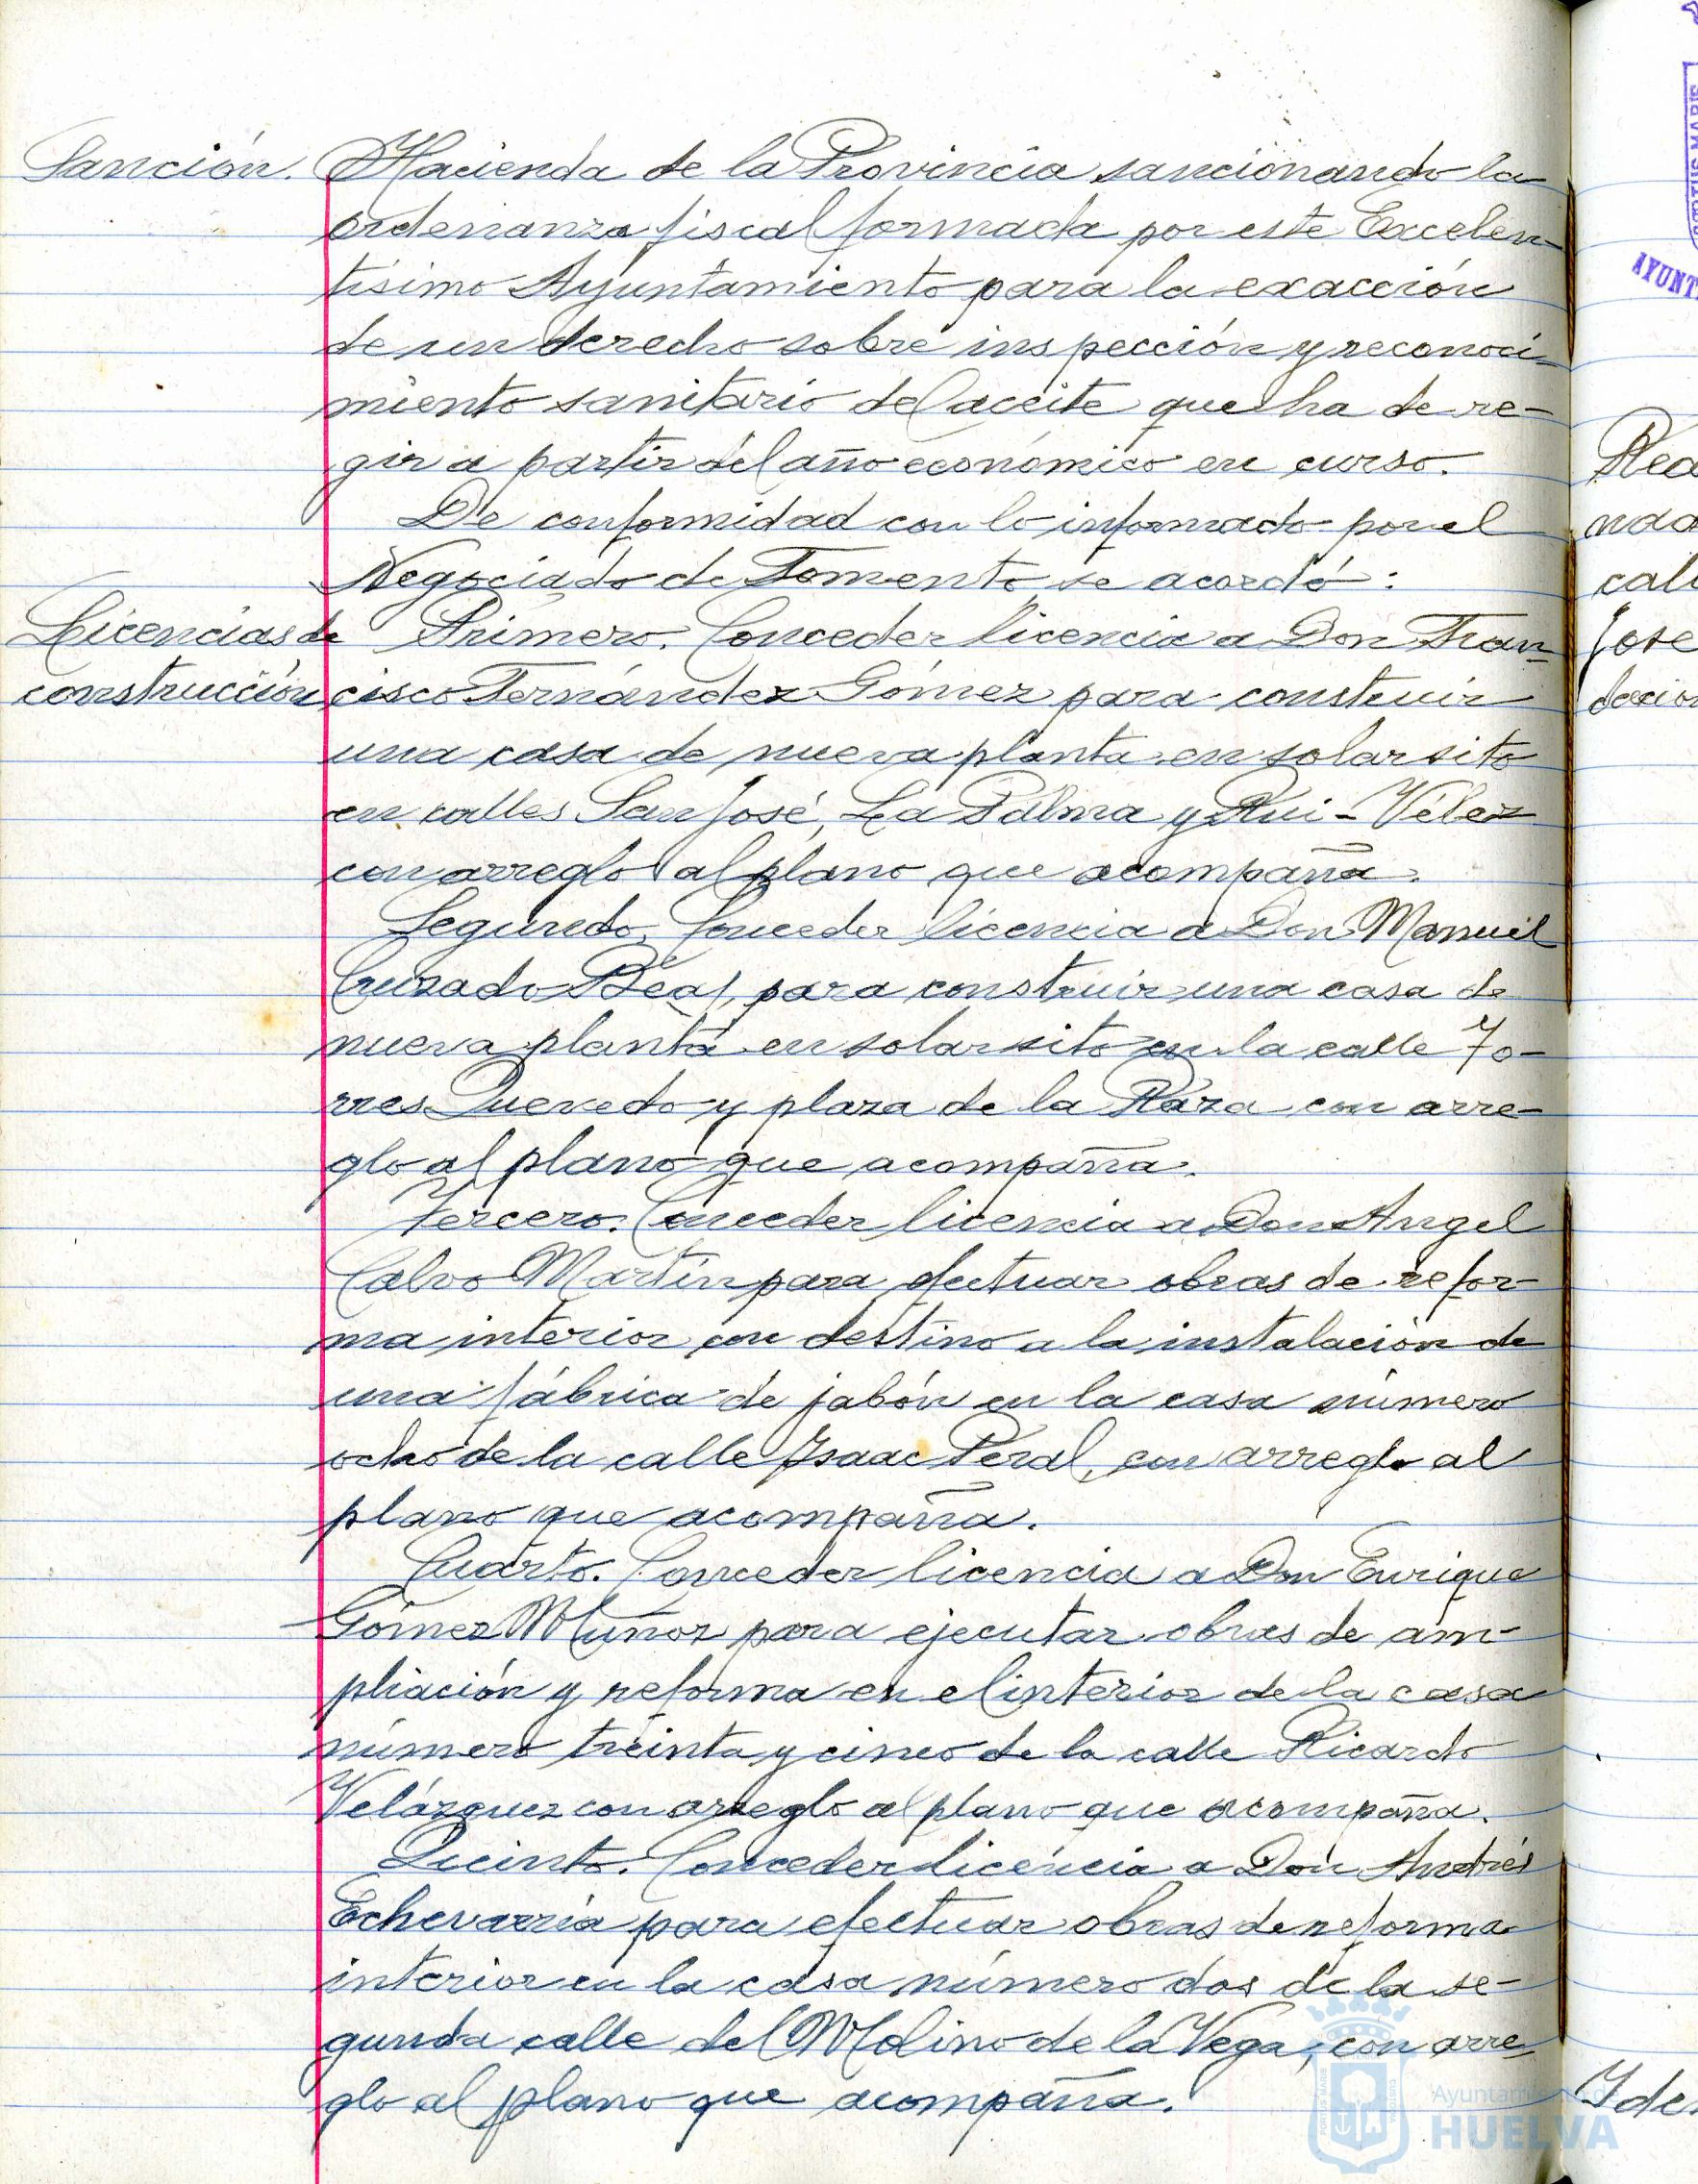 Sanción.
Hacienda de la Provincia sancionando la
ordenanza fiscal formada por este Excelen-
tísimo Ayuntamiento para la exacción
de un derecho sobre inspección y reconoci-
miento sanitario del aceite que ha de re-
gir a partir del año económico en curso.
De conformidad con lo informado por el
Negociado de Fomento se acordó:
Licencias de
construcción
Primero. Conceder licencia a Don Fran-
cisco Fernández Gómez para construir
una casa de nueva planta en solar sito
en calles San José, La Palma y Rui-Vélez
con arreglo al plano que acompaña.
Segundo. Conceder licencia a Don Manuel
Cruzado para construir una casa de
nueva planta en solar sito en la calle To-
rres Quevedo y plaza de la Raza con arre-
glo al plano que acompaña.
Tercero. Conceder licencia a Don Angel
Calvo Martín para efectuar obras de refor-
ma interior con destino a la instalación de
una fábrica de jabón en la casa número
ocho de la calle Isaac Peral, con arreglo al
plano que acompaña.
Cuarto. Conceder licencia a Don Enrique
Gómez Muñoz para ejecutar obras de am-
pliación y reforma en el interior de la casa
número treinta y cinco de la calle Ricardo
Velázquez con arreglo al plano que acompaña.
Quinto. Conceder licencia a Don Andrés
Echevarría para efectuar obras de reforma
interior en la casa número dos de la se-
gunda calle del Molino de la Vega, con arre-
glo al plano que acompaña.
Ayuntamiento de
HUELVA
AYUNT